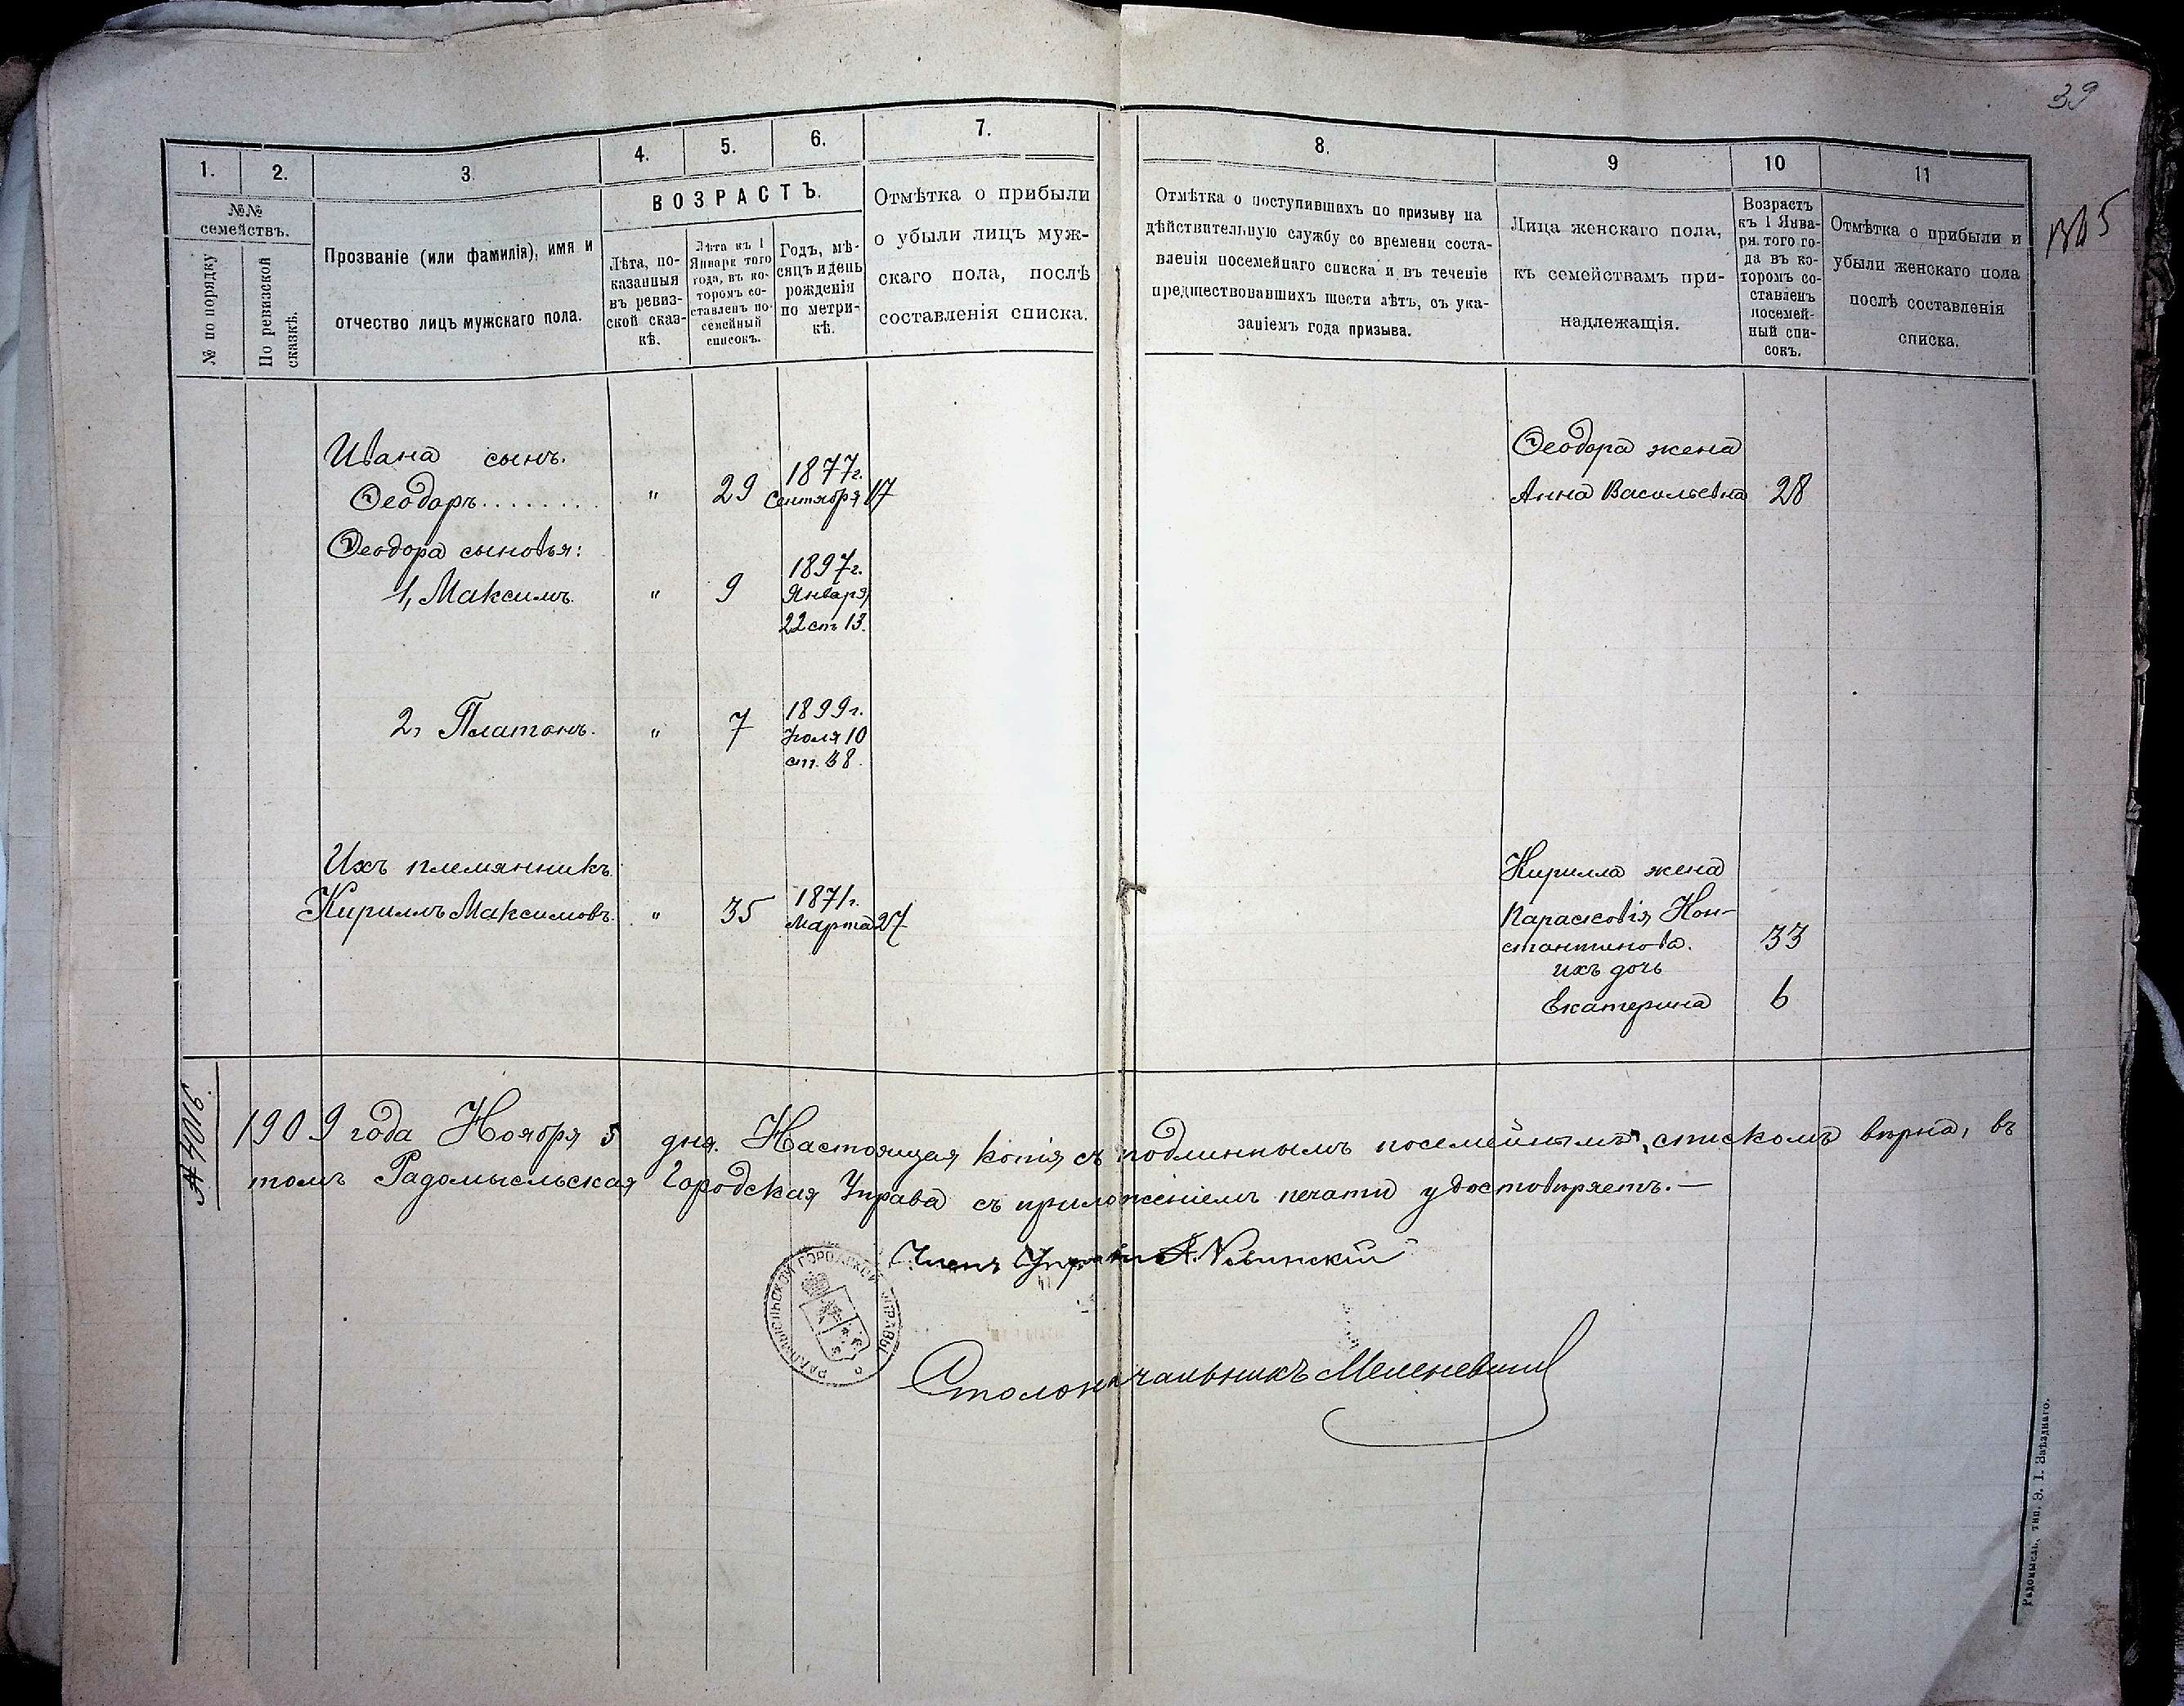 39
1. 2. 3. 4. 5. 6. 7. 8. 9 10 11
№№
семействъ.
№ по порядку
По ревизской
сказкѣ.
Прозваніе (или фамилія), имя и
отчество лицъ мужскаго пола.
ВОЗРАСТЪ.
Лѣта, по-
казанныя
въ ревиз-
ской сказ-
кѣ.
Лѣта къ 1
Января того
года, въ ко-
торомъ со-
ставленъ по-
семейный
списокъ.
Годъ, мѣ-
сяцъ и день
рожденія
по метри-
кѣ.
Отмѣтка о прибыли
о убыли лицъ муж-
скаго пола, послѣ
составленія списка.
Отмѣтка о поступившихъ по призыву на
дѣйствительную службу со времени соста-
вленія посемейнаго списка и въ теченіе
предшествовавшихъ шести лѣтъ, съ ука-
заніемъ года призыва.
Лица женскаго пола,
къ семействамъ при-
надлежащія.
Возрастъ
къ 1 Янва-
ря, того го-
да въ ко-
торомъ со-
ставленъ
посемей-
ный спи-
сокъ.
Отмѣтка о прибыли и
убыли женскаго пола
послѣ составленія
списка.
Ивана сынъ.
Ѳеодоръ........ " 29 1877г.
Сентября 17
Ѳеодора жена
Анна Васильевна 28
Ѳеодора сыновья:
1, Максимъ. " 9 1897г.
Января
22 ст 13.
2, Платонъ. " 7 1899г.
Іюля 10
ст. 38.
Ихъ племянникъ
Кириллъ Максимовъ. " 35 1871г.
Марта 27
Кирилла жена
Парасковія Кон-
стантинова. 33
ихъ дочь
Екатерина 6
№ 4016.
1909 года Ноября 5 дня. Настоящая копія съ подлиннымъ посемейнымъ спискомъ вѣрна, въ
томъ Радомысльская Городская Управа съ приложеніемъ печати удостовѣряетъ.—
Членъ Управы А.
РАДОМЫСЛЬСКОЙ ГОРОДСКОЙ УПРАВЫ
Столоначальникъ Меленевскій
Радомысль, тип. Э. І. Заѣзднаго.